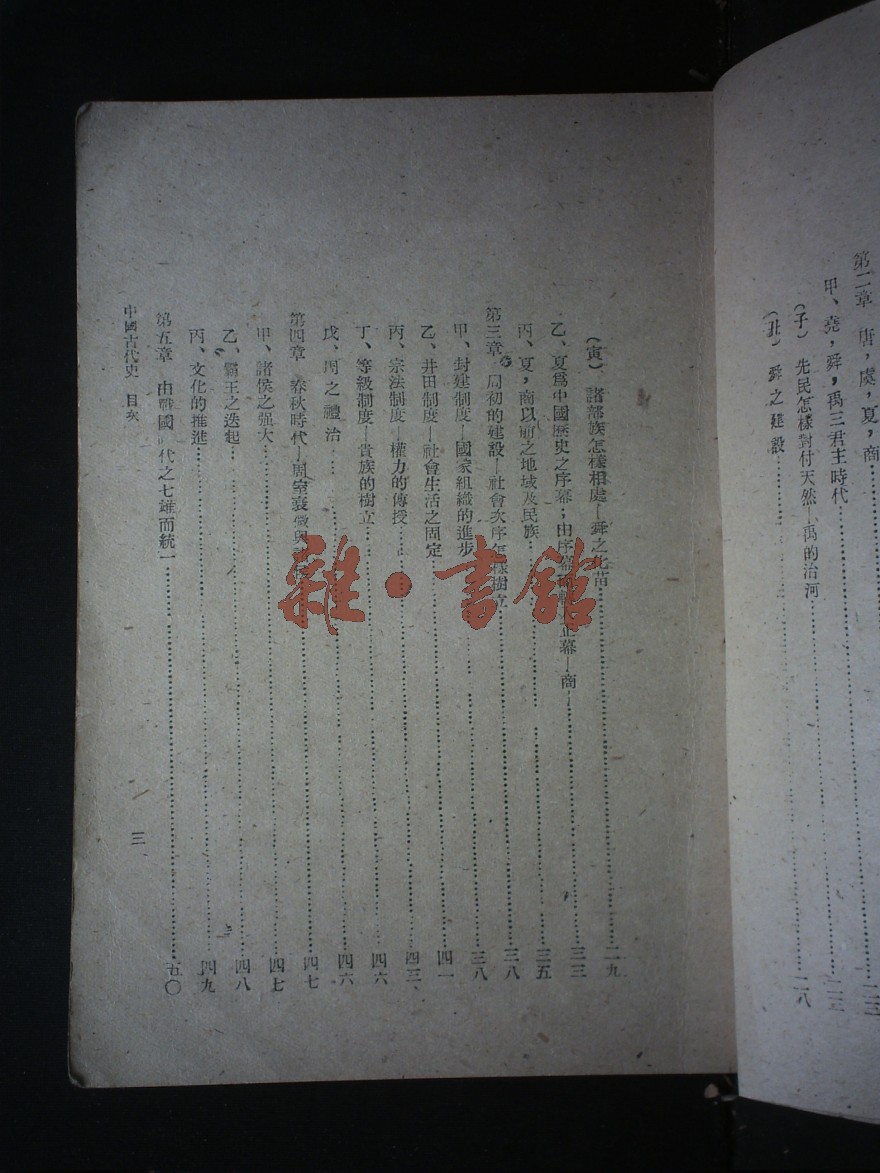 第二章 唐,虞,夏,商
甲、堯,舜,禹三君主時代
(子) 先民怎樣對付天然—禹的治河
(丑) 舜之建設 二八
(寅)、諸部族怎樣相處—舜之 苗 二九
乙、夏爲中國歷史之序幕;由序幕 正幕—商— 三三
丙、夏,商以前之地域及民族 三五
第三章 周初的建設—社會次序怎樣樹立 三八
甲、封建制度—國家組織的進步 三八
乙、井田制度—社會生活之固定 四一
丙、宗法制度—權力的傳授 四三
丁、等級制度—貴族的樹立 四六
戊、周之禮治 四六
第四章 春秋時代—周室衰微與 四七
甲、諸侯之强大 四七
乙、霸王之迭起 四八
丙、文化的推進 四九
第五章 由戰國時代之七雄而統一 五〇
中國古代史 目次
三
雜·書館